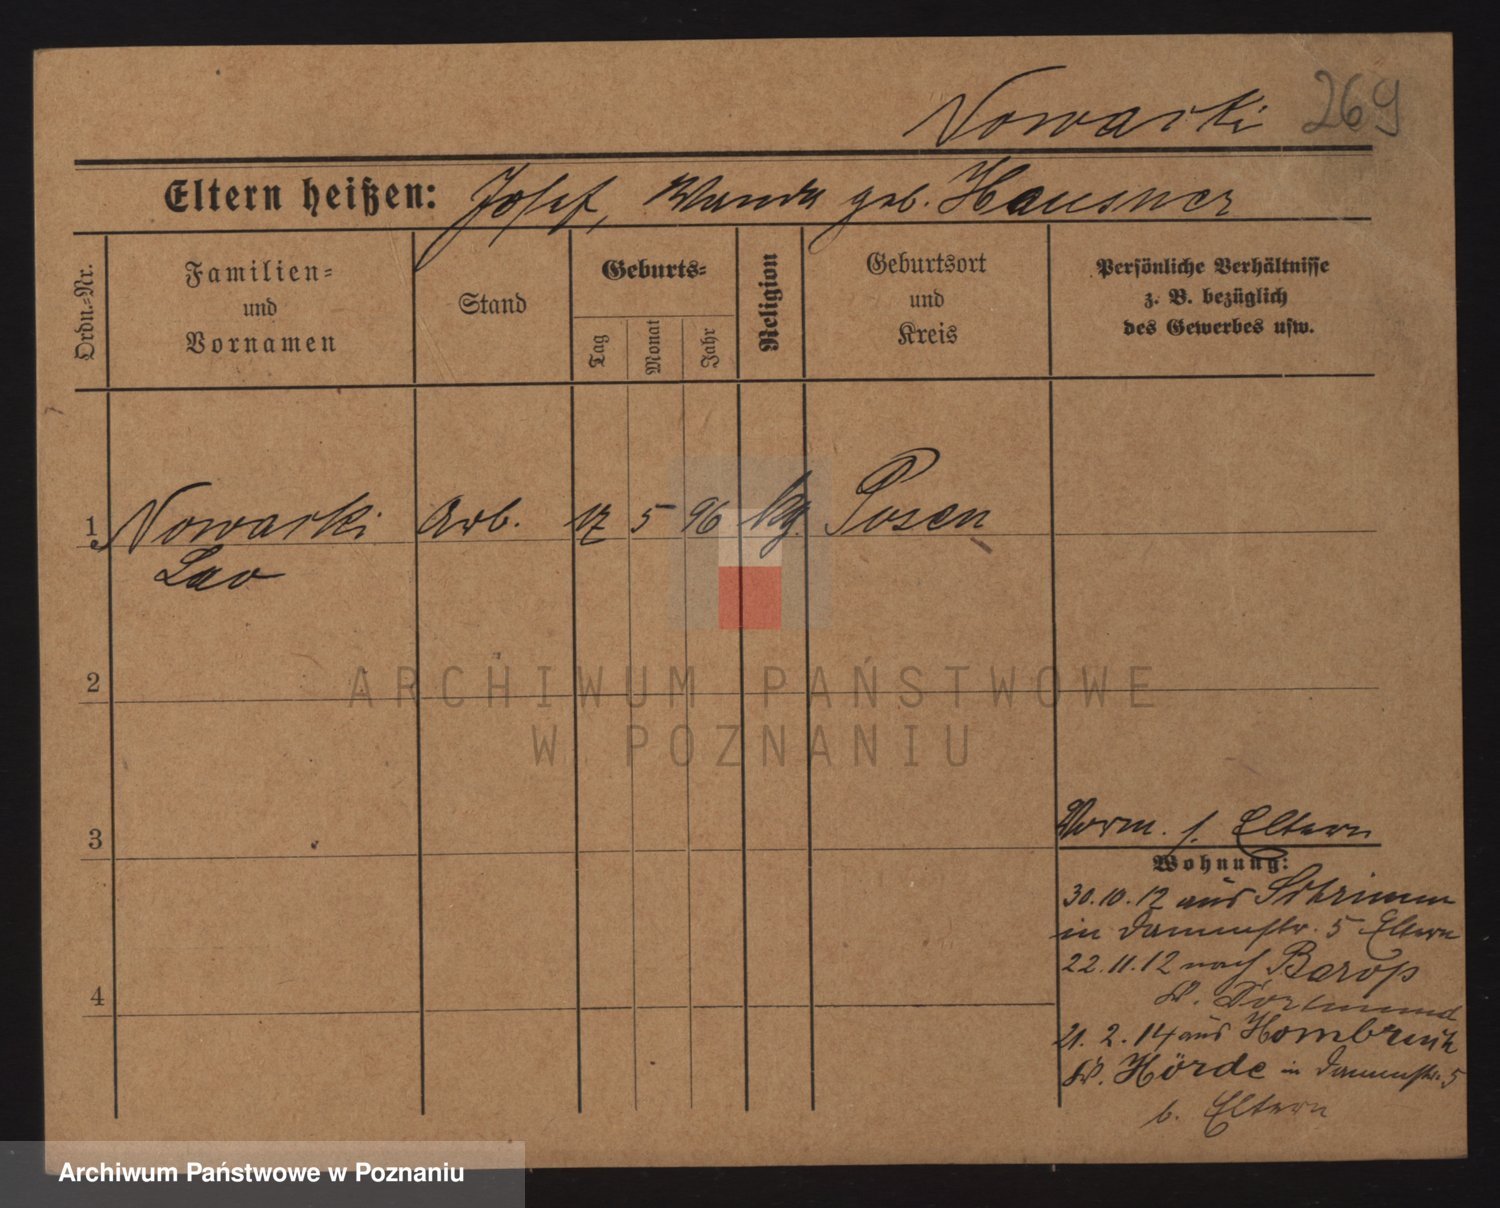 Nowacki 269
Eltern heißen: Josef, Wanda geb. Hausner
Ordn.-Nr.
Familien-
und
Vornamen
Stand
Geburts-
Tag
Monat
Jahr
Religion
Geburtsort
und
Kreis
Persönliche Verhältnisse
z. B. bezüglich
des Gewerbes usw.
1 Nowacki Arb. 17 5 96 kg. Posen
Leo
2
3
4
Vorm. s. Eltern
Wohnung:
30.10.12 aus Schrimm
in Dammstr. 5 Eltern
22.11.12 nach Barop
Kr. Dortmund
21. 2. 14 aus Hombruch
Kr. Hörde in Dammstr. 5
b. Eltern
ARCHIWUM PAŃSTWOWE
W POZNANIU
Archiwum Państwowe w Poznaniu